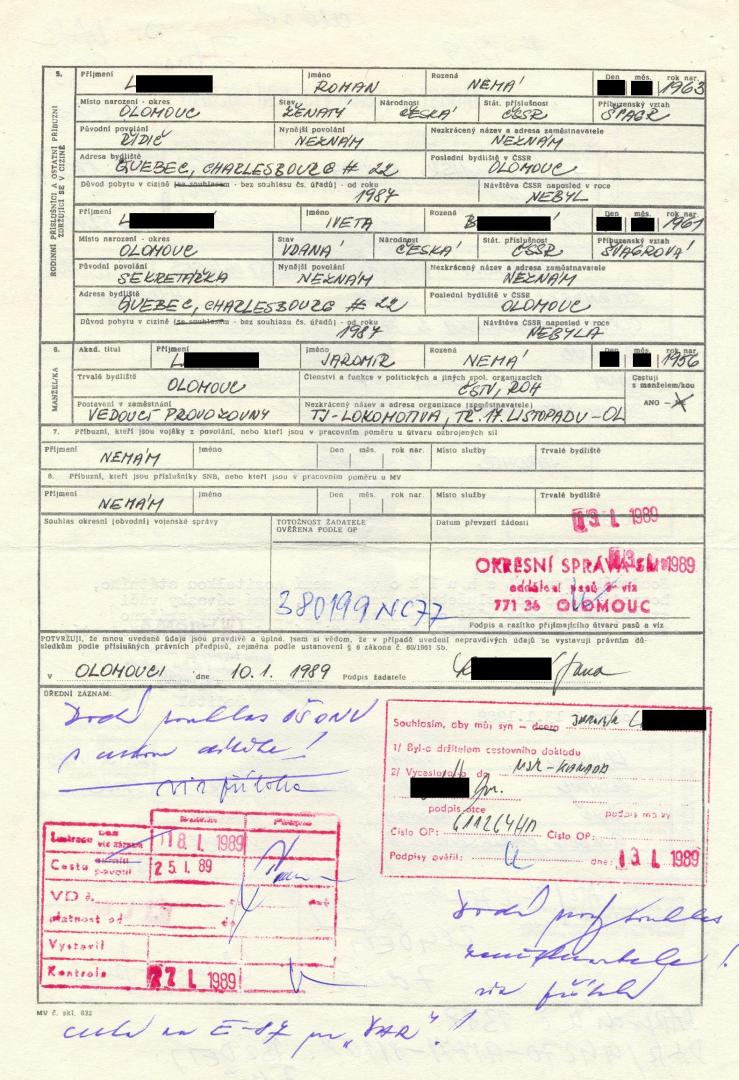 5.
RODINNÍ PŘÍSLUŠNÍCI A OSTATNÍ PŘÍBUZNÍ ZDRŽUJÍCÍ SE V CIZINĚ
Příjmení Jméno Rozená Den měs. rok nar.
L ROMAN NEMÁ 1963
Místo narození - okres Stav Národnost Stát. příslušnost Příbuzenský vztah
OLOMOUC ŽENATÝ ČESKÁ ČSSR ŠVAGR
Původní povolání Nynější povolání Nezkrácený název a adresa zaměstnavatele
ŘIDIČ NEZNÁM NEZNÁM
Adresa bydliště Poslední bydliště v ČSSR
QUEBEC, CHARLESBOURG # 22 OLOMOUC
Důvod pobytu v cizině (se souhlasem - bez souhlasu čs. úřadů) - od roku Návštěva ČSSR naposled v roce
1987 NEBYL
Příjmení Jméno Rozená Den měs. rok nar.
L IVETA B 1961
Místo narození - okres Stav Národnost Stát. příslušnost Příbuzenský vztah
OLOMOUC VDANÁ ČESKÁ ČSSR ŠVAGROVÁ
Původní povolání Nynější povolání Nezkrácený název a adresa zaměstnavatele
SEKRETÁŘKA NEZNÁM NEZNÁM
Adresa bydliště Poslední bydliště v ČSSR
QUEBEC, CHARLESBOURG # 22 OLOMOUC
Důvod pobytu v cizině (se souhlasem - bez souhlasu čs. úřadů) - od roku Návštěva ČSSR naposled v roce
1987 NEBYLA
6.
MANŽEL/KA
Akad. titul Příjmení Jméno Rozená Den měs. rok nar.
L JAROMÍR NEMÁ 1956
Trvalé bydliště Členství a funkce v politických a jiných spol. organizacích Cestuji s manželem/kou
OLOMOUC ČSTV, ROH ANO - NE
Postavení v zaměstnání Nezkrácený název a adresa organizace (zaměstnavatele)
VEDOUCÍ PROVOZOVNY TJ-LOKOMOTIVA, TŘ. 17. LISTOPADU-OL
7. Příbuzní, kteří jsou vojáky z povolání, nebo kteří jsou v pracovním poměru u útvaru ozbrojených sil
Příjmení Jméno Den měs. rok nar. Místo služby Trvalé bydliště
NEMÁM
8. Příbuzní, kteří jsou příslušníky SNB, nebo kteří jsou v pracovním poměru u MV
Příjmení Jméno Den měs. rok nar. Místo služby Trvalé bydliště
NEMÁM
Souhlas okresní (obvodní) vojenské správy TOTOŽNOST ŽADATELE OVĚŘENA PODLE OP Datum převzetí žádosti
13. I. 1989
13. I. 1989
OKRESNÍ SPRÁVA SNB
oddělení pasů a víz
771 36 OLOMOUC
380199 NC77
Podpis a razítko přijímajícího útvaru pasů a víz
POTVRZUJI, že mnou uvedené údaje jsou pravdivé a úplné. Jsem si vědom, že v případě uvedení nepravdivých údajů se vystavuji právním důsledkům podle příslušných právních předpisů, zejména podle ustanovení § 6 zákona č. 60/1961 Sb.
V OLOMOUCI dne 10. 1. 1989 Podpis žadatele Jana
ÚŘEDNÍ ZÁZNAM:
Dodá souhlas OŠONV
viz příloha
Souhlasím, aby můj syn - dcera L
1/ Byl-a držitelem cestovního dokladu
2/ Vycestoval-a do NSR-KANADA
podpis otce podpis matky
Číslo OP: 611264HD Číslo OP:
Podpisy ověřil: dne: 13. I. 1989
Lustrace viz záznam 18. I. 1989
Cestu povolil 25. I. 89
VD č.
platnost od do
Vystavil
Kontrola 27. I. 1989
Dodá souhlas
zaměstnavatele!
viz příloha
MV č. skl. 832